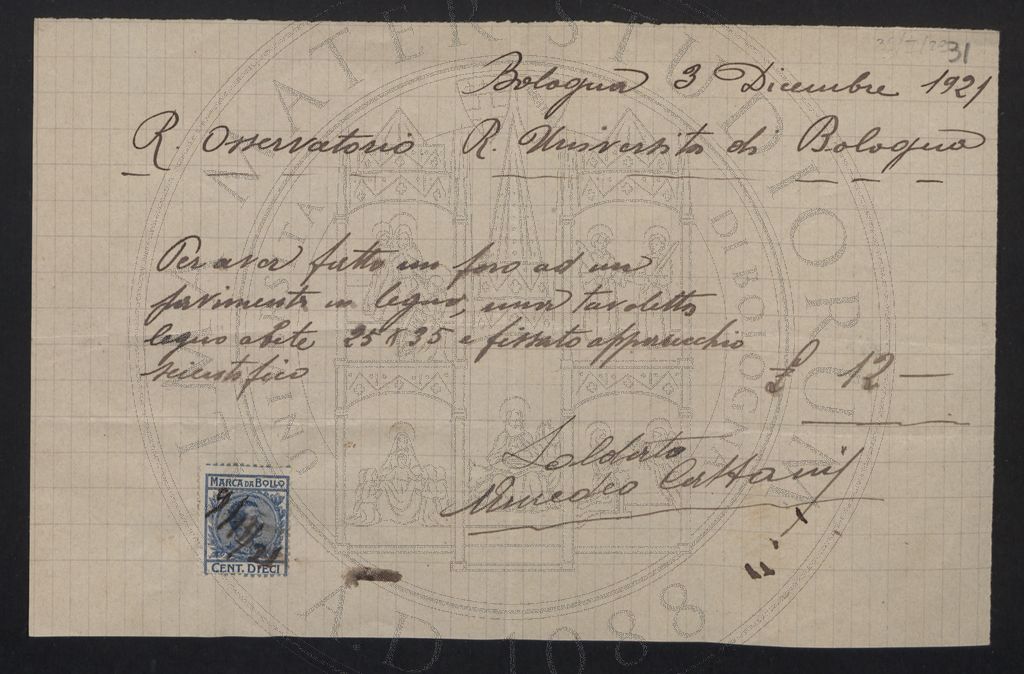 31
Bologna 3 Dicembre 1921
R. Osservatorio R. Università di Bologna
Per aver fatto un foro ad un
pavimento in legno, una tavoletta
legno abete 25 x 35 e fissato apparecchio
scientifico
£ 12 —
Saldato
Amedeo Cattani
MARCA DA BOLLO
9/XII/21
CENT. DIECI
ALMA MATER STUDIORUM
UNIVERSITÀ DI BOLOGNA
A.D. 1088